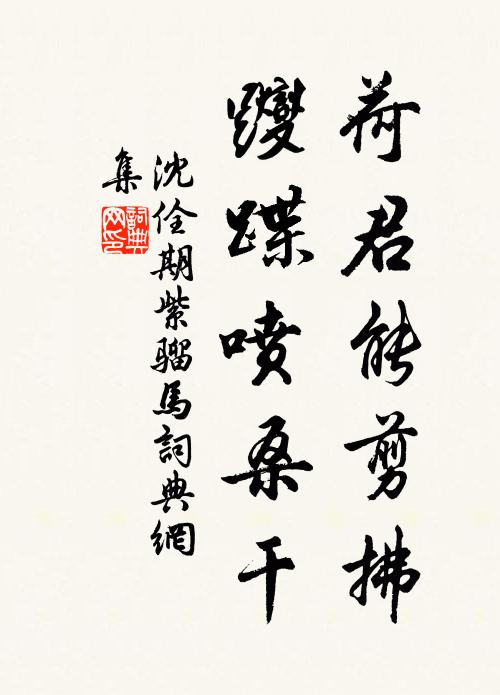 荷君能剪拂
躞蹀喷桑干
沈佺期紫骝馬詞典網
集
詞典
网印